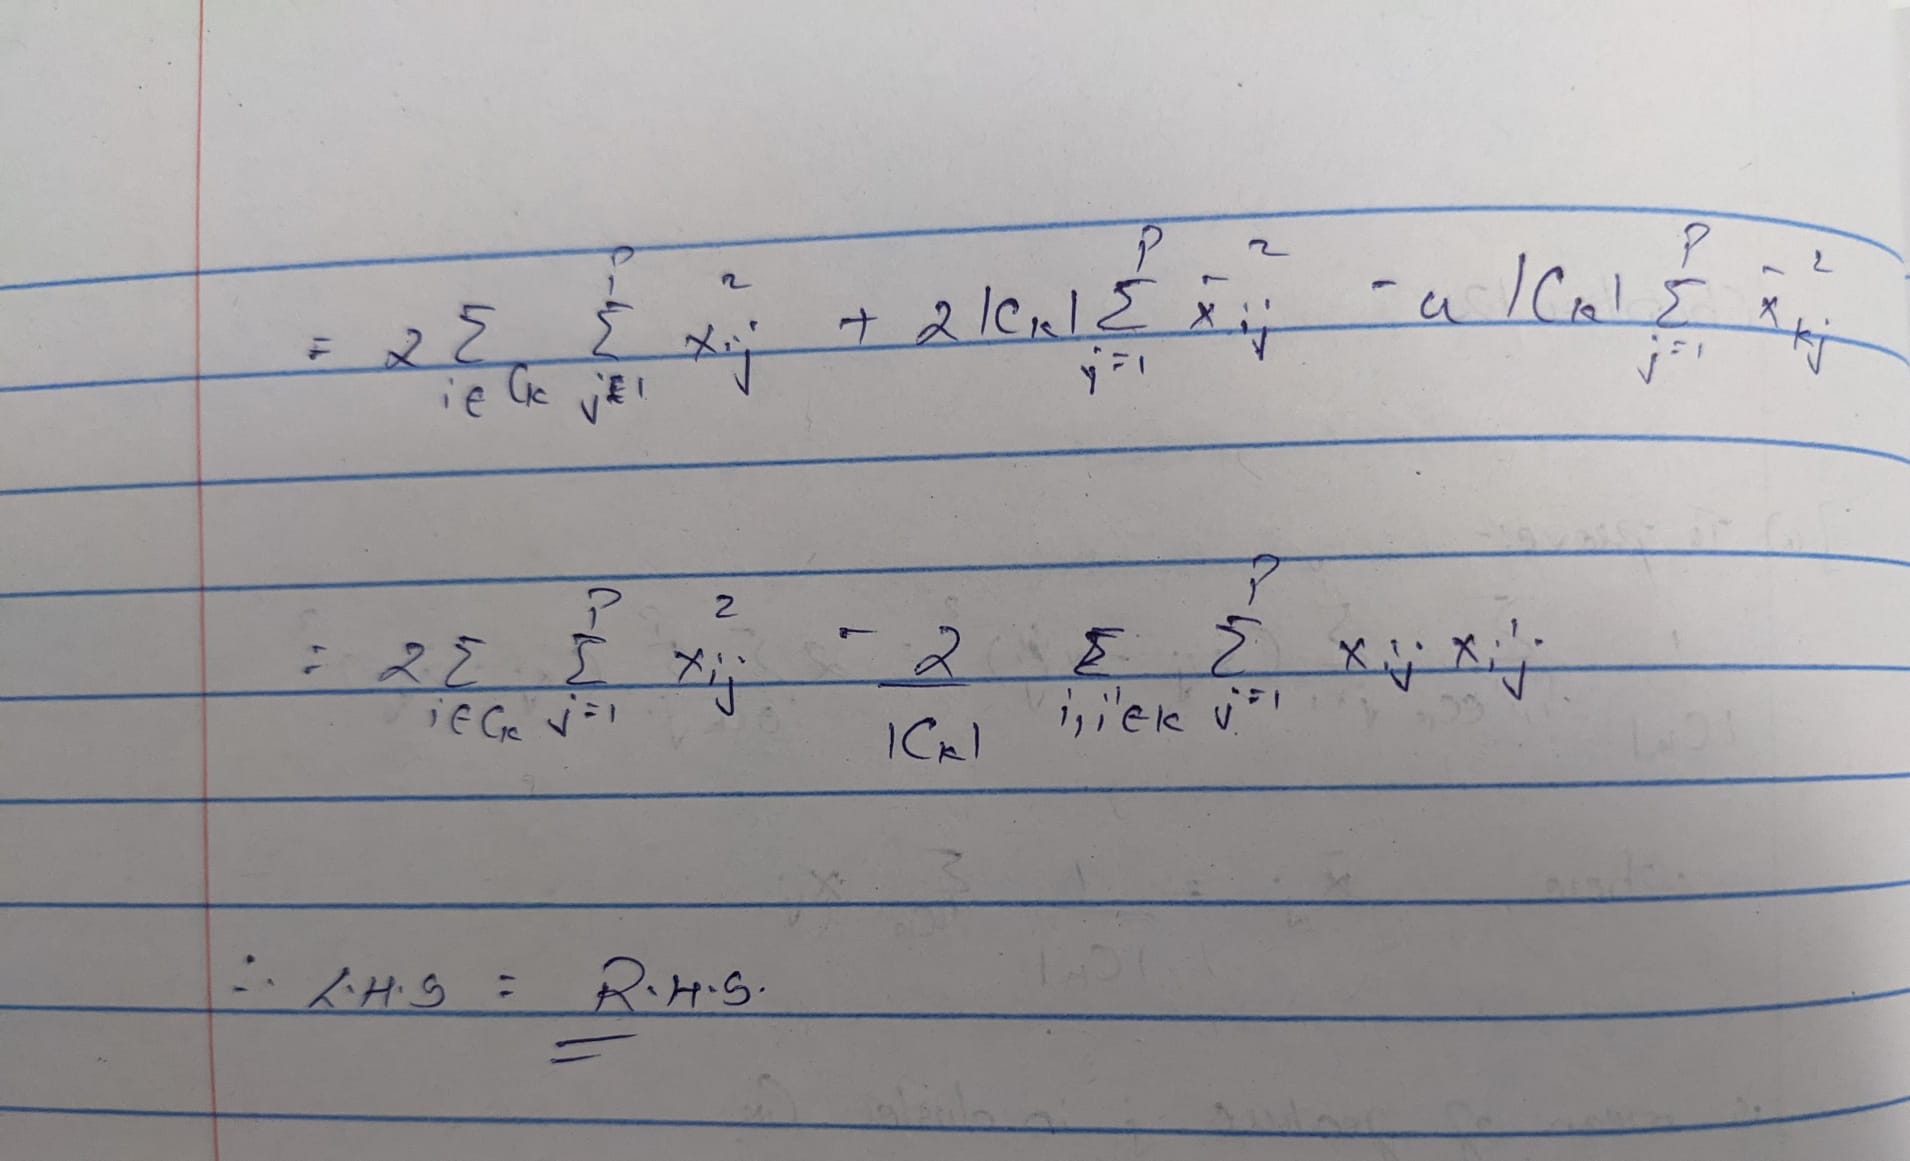 = 2 Σ_{i∈C_k} Σ_{j=1}^{P} x_{ij}^2 + 2|C_k| Σ_{j=1}^{P} x̄_{ij}^2 - 4|C_k| Σ_{j=1}^{P} x̄_{kj}^2
= 2 Σ_{i∈C_k} Σ_{j=1}^{P} x_{ij}^2 - 2/|C_k| Σ_{i,i'∈k} Σ_{j=1}^{P} x_{ij} x_{i'j}
∴ L.H.S = R.H.S.